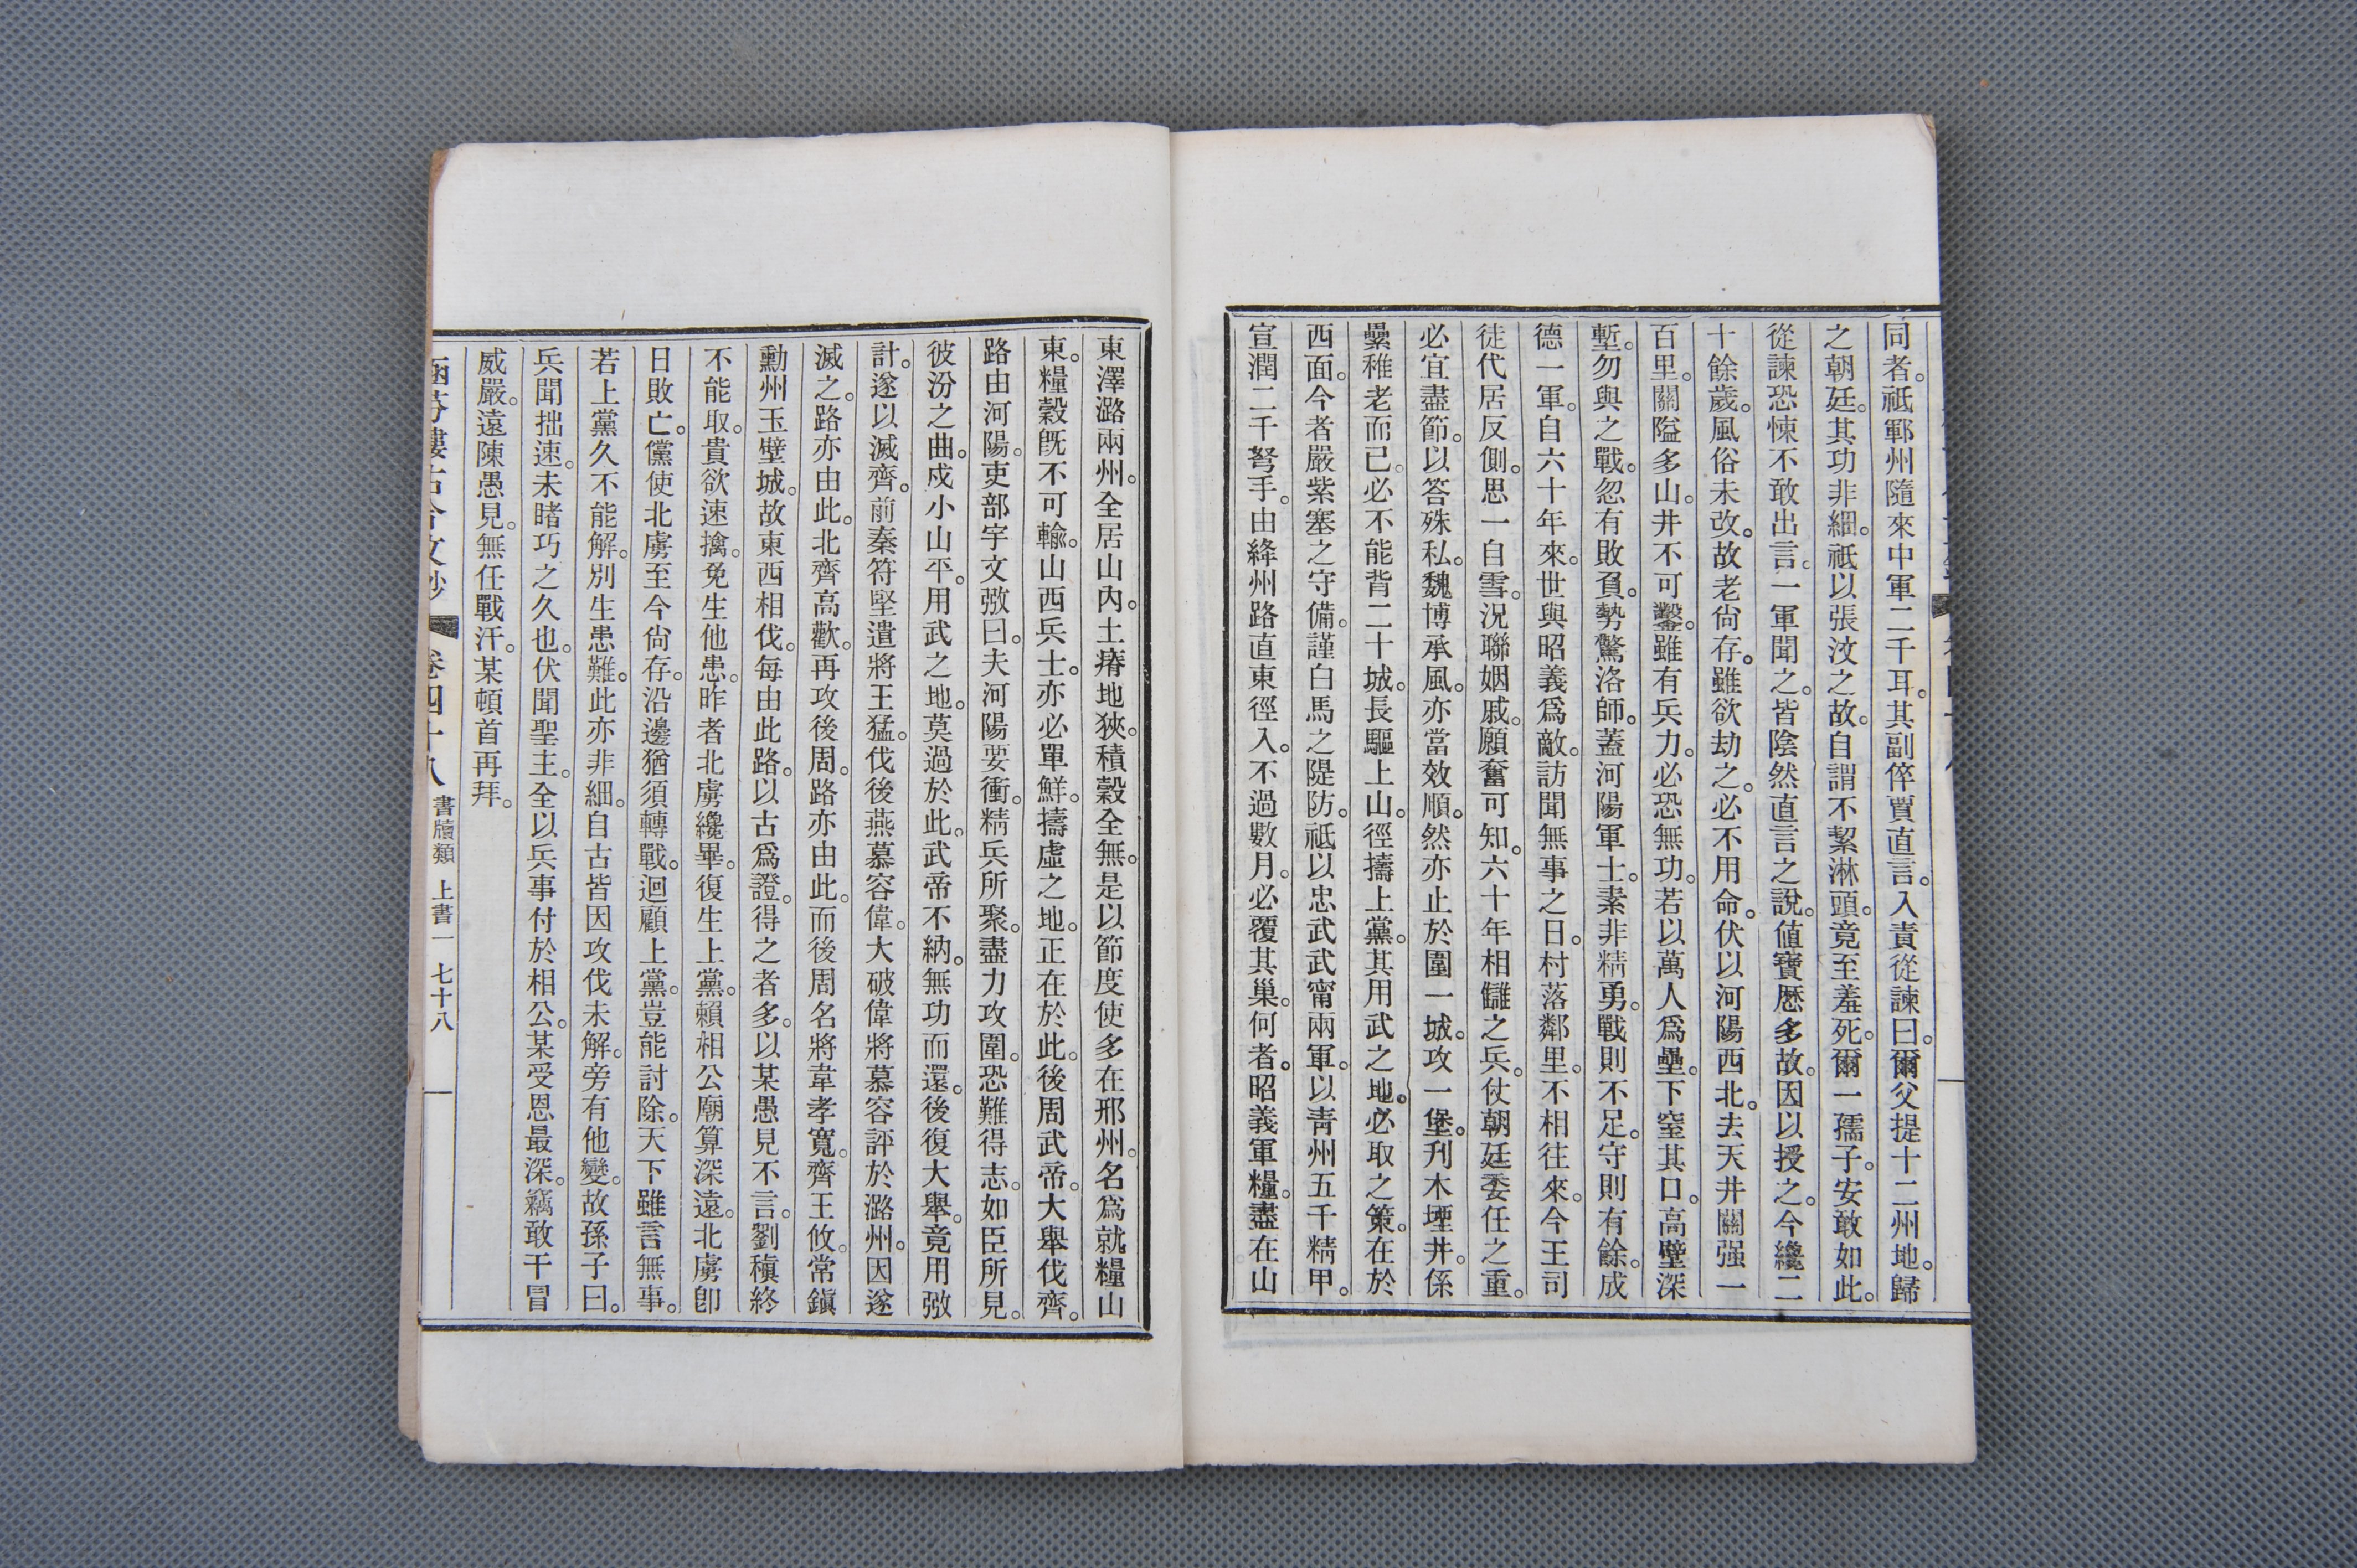 同者。祇鄆州隨來中軍二千耳。其副倅賈直言。入責從諫曰。爾父提十二州地。歸
之朝廷。其功非細。祇以張汶之故。自謂不絜淋頭。竟至羞死。爾一孺子。安敢如此。
從諫恐悚不敢出言。一軍聞之。皆陰然直言之說。値寶歷多故。因以授之。今纔二
十餘歲。風俗未改。故老尙存。雖欲劫之。必不用命。伏以河陽西北。去天井關强一
百里。關隘多山。井不可鑿。雖有兵力。必恐無功。若以萬人爲壘。下窒其口。高壁深
塹。勿與之戰。忽有敗負。勢驚洛師。蓋河陽軍士。素非精勇。戰則不足。守則有餘。成
德一軍。自六十年來。世與昭義爲敵。訪聞無事之日。村落鄰里。不相往來。今王司
徒代居反側。思一自雪。況聯姻戚。願奮可知。六十年相讎之兵。仗朝廷委任之重。
必宜盡節。以答殊私。魏博承風。亦當效順。然亦止於圍一城。攻一堡。刋木堙井。係
纍稚老而已。必不能背二十城。長驅上山。徑擣上黨。其用武之地。必取之策。在於
西面。今者嚴紫塞之守備。謹白馬之隄防。祗以忠武武甯兩軍。以靑州五千精甲。
宣潤二千弩手。由絳州路直東徑入。不過數月。必覆其巢。何者。昭義軍糧。盡在山
東澤潞兩州。全居山內。土瘠地狹。積穀全無。是以節度使多在邢州。名爲就糧山
東。糧穀旣不可輸。山西兵士。亦必單鮮。擣虛之地。正在於此。後周武帝。大舉伐齊。
路由河陽。吏部宇文弢曰。夫河陽要衝。精兵所聚。盡力攻圍。恐難得志。如臣所見。
彼汾之曲。戍小山平。用武之地。莫過於此。武帝不納。無功而還。後復大舉。竟用弢
計。遂以滅齊。前秦符堅遣將王猛。伐後燕慕容偉。大破偉將慕容評於潞州。因遂
滅之。路亦由此。北齊高歡。再攻後周。路亦由此。而後周名將韋孝寬。齊王攸。常鎭
勳州玉壁城。故東西相伐。每由此路。以古爲證。得之者多。以某愚見不言。劉稹終
不能取。貴欲速擒。免生他患。昨者北虜纔畢。復生上黨。賴相公廟算深遠。北虜卽
日敗亡。儻使北虜至今尙存。沿邊猶須轉戰。迴顧上黨。豈能討除。天下雖言無事。
若上黨久不能解。別生患難。此亦非細。自古皆因攻伐未解。旁有他變。故孫子曰。
兵聞拙速。未睹巧之久也。伏聞聖主。全以兵事付於相公。某受恩最深。竊敢干冒
威嚴。遠陳愚見。無任戰汗。某頓首再拜。
涵芬樓古今文鈔 卷四十八 書牘類 上書一 七十八